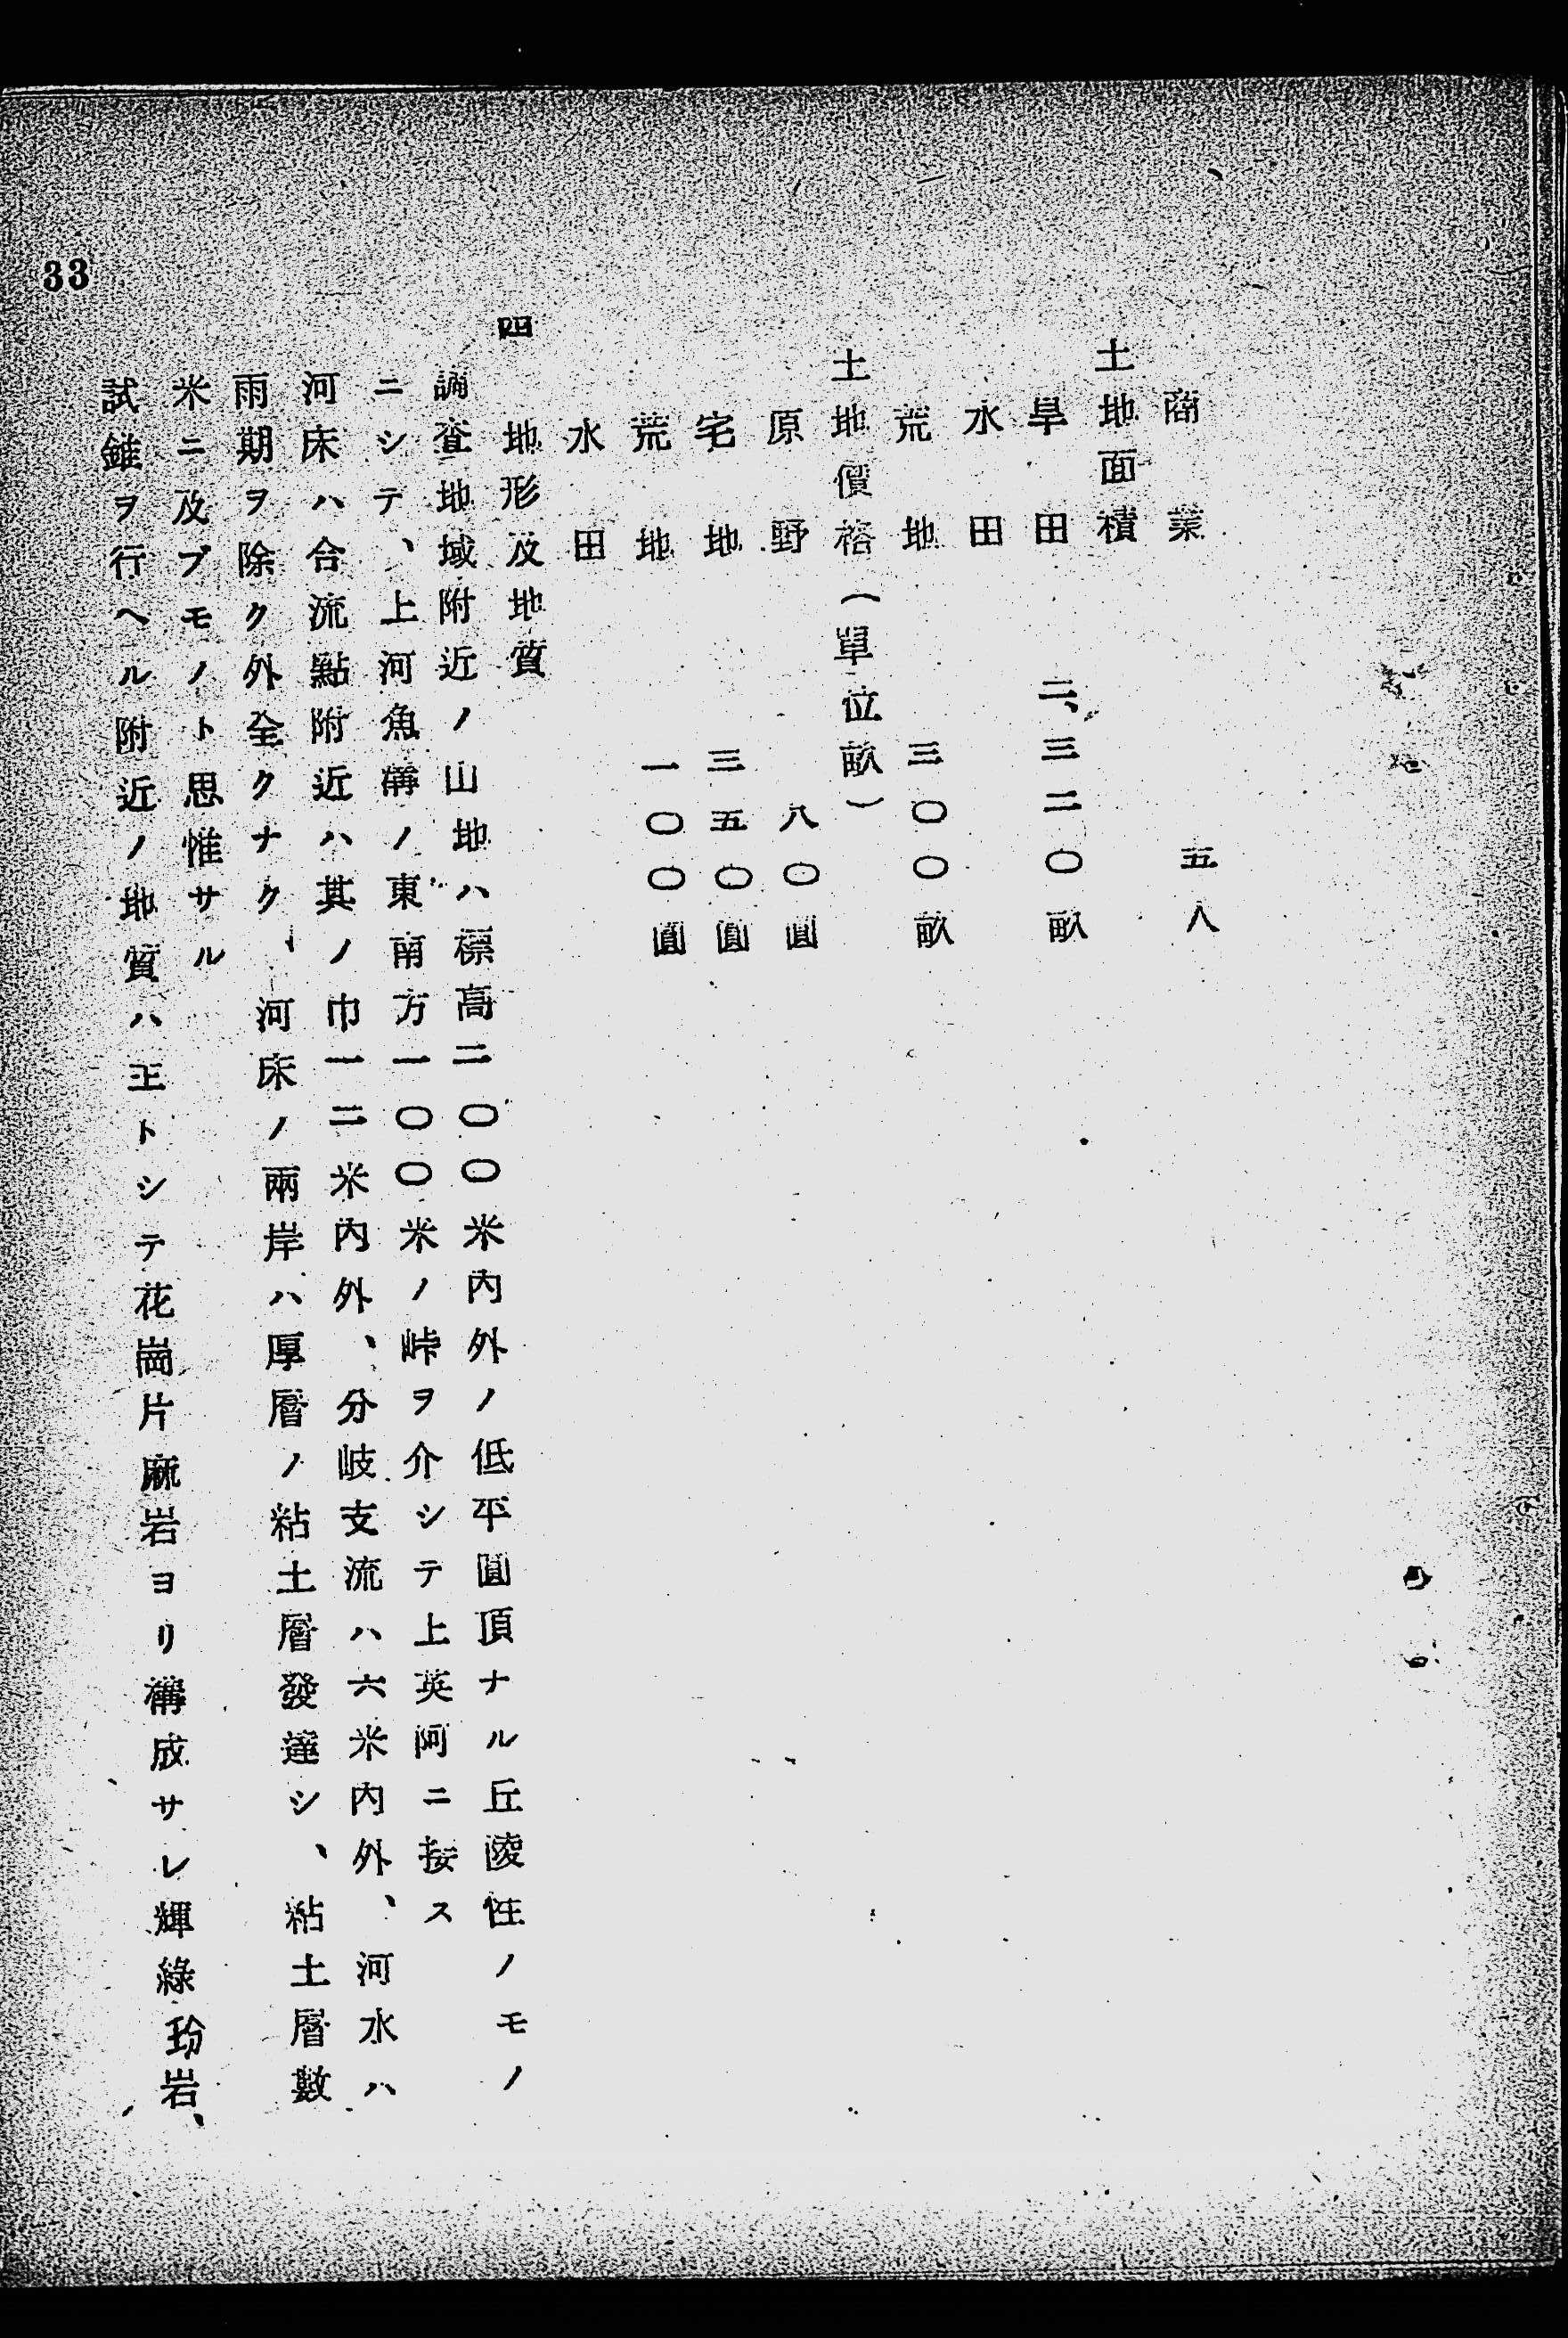 商業 五人
土地面積
旱田 二、三二〇畝
水田
荒地 三〇〇畝
土地價格(單位畝)
原野 八〇圓
宅地 三五〇圓
荒地 一〇〇圓
水田
四 地形及地質
調査地域附近ノ山地ハ標高二〇〇米內外ノ低平圓頂ナル丘陵性ノモノ
ニシテ、上河魚溝ノ東南方一〇〇米ノ峠ヲ介シテ上英阿ニ接ス
河床ハ合流點附近ハ其ノ巾一二米內外、分岐支流ハ六米內外、河水ハ
雨期ヲ除ク外全クナク、河床ノ兩岸ハ厚層ノ粘土層發達シ、粘土層數
米ニ及ブモノト思惟サル
試錐ヲ行ヘル附近ノ地質ハ主トシテ花崗片麻岩ヨリ構成サレ輝綠玢岩、
33